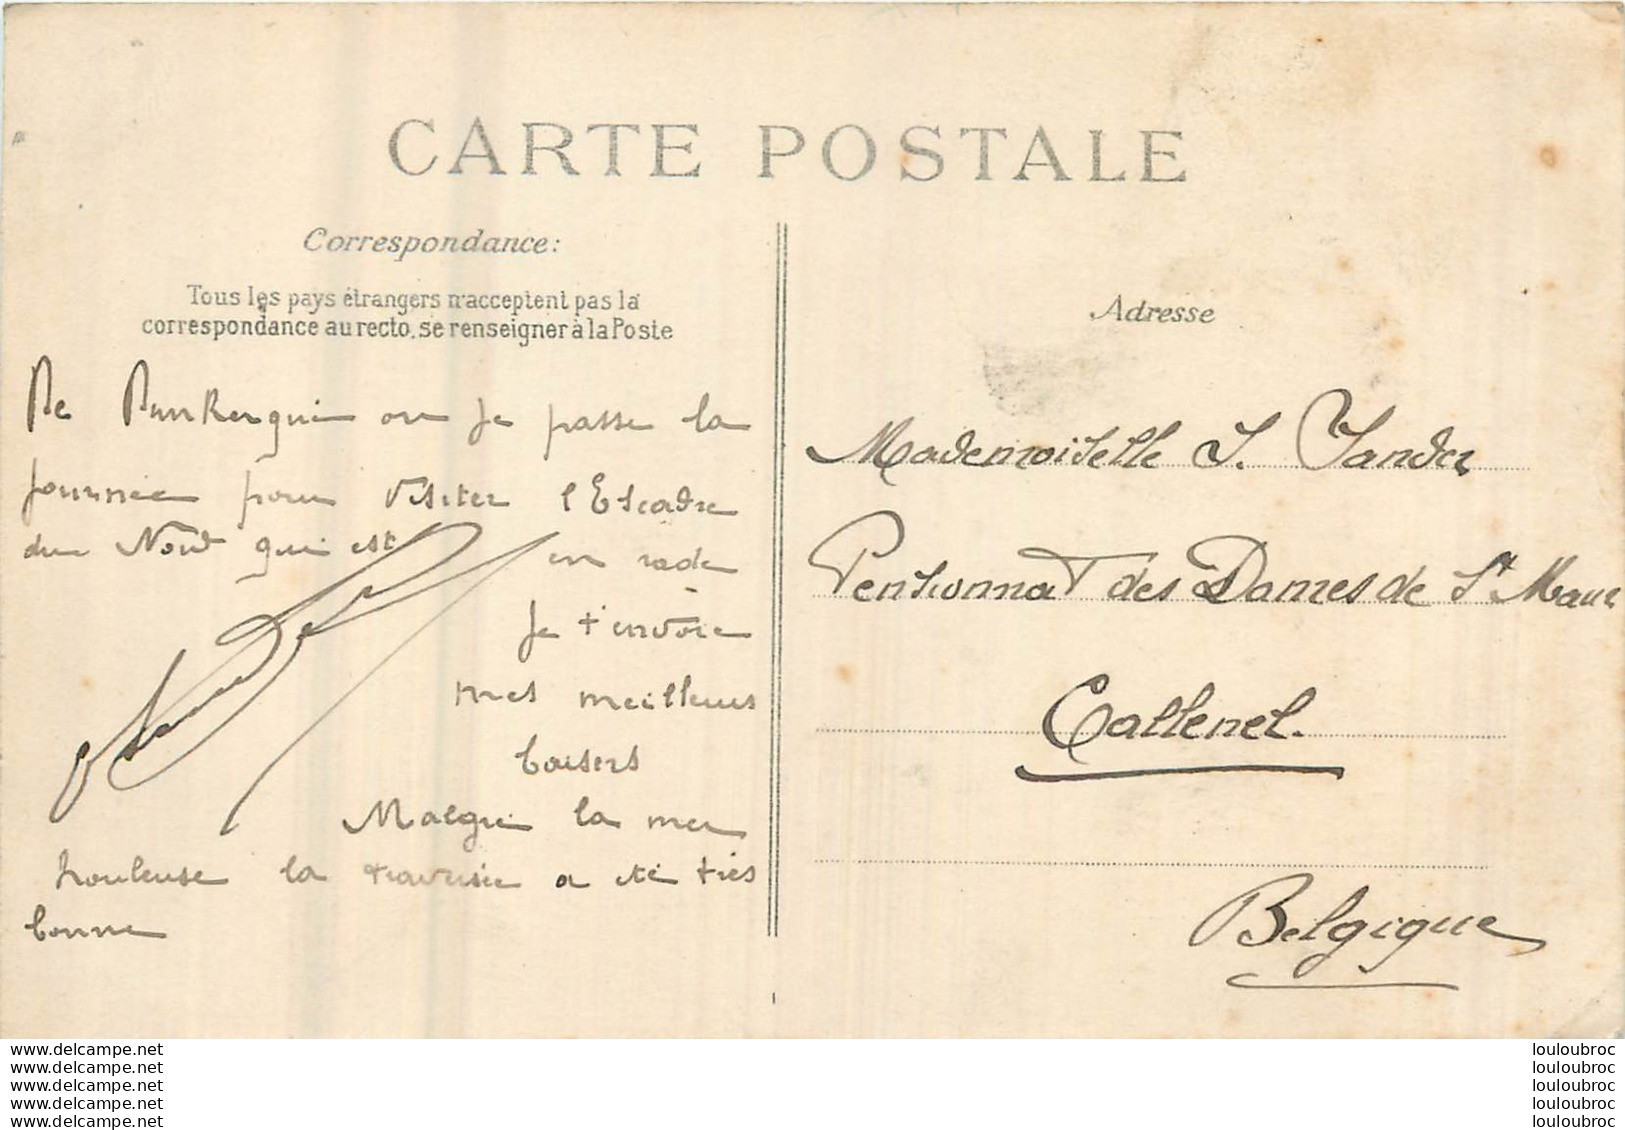 CARTE POSTALE
Correspondance:
Tous les pays étrangers n'acceptent pas la
correspondance au recto, se renseigner à la Poste
De Dunkerque ou je passe la
journée pour visiter l'Escadre
du Nord qui est
en rade
Je t'envoie
mes meilleurs
baisers
Malgré la mer
houleuse la traversée a été très
bonne
Adresse
Mademoiselle
Pensionnat des Dames de St Maur
Callenel.
Belgique
www.delcampe.net
www.delcampe.net
www.delcampe.net
www.delcampe.net
www.delcampe.net
louloubroc
louloubroc
louloubroc
louloubroc
louloubroc